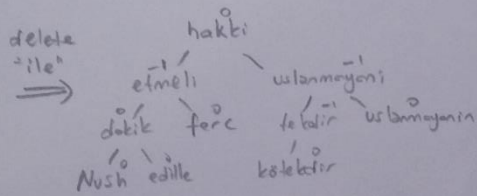 delete
"ile"
0
hakki
-1 -1
etmeli uslanmayani
0 0 -1 0
dakik ferc tekdir uslanmayanin
0 0 0
Nush edille kötektir